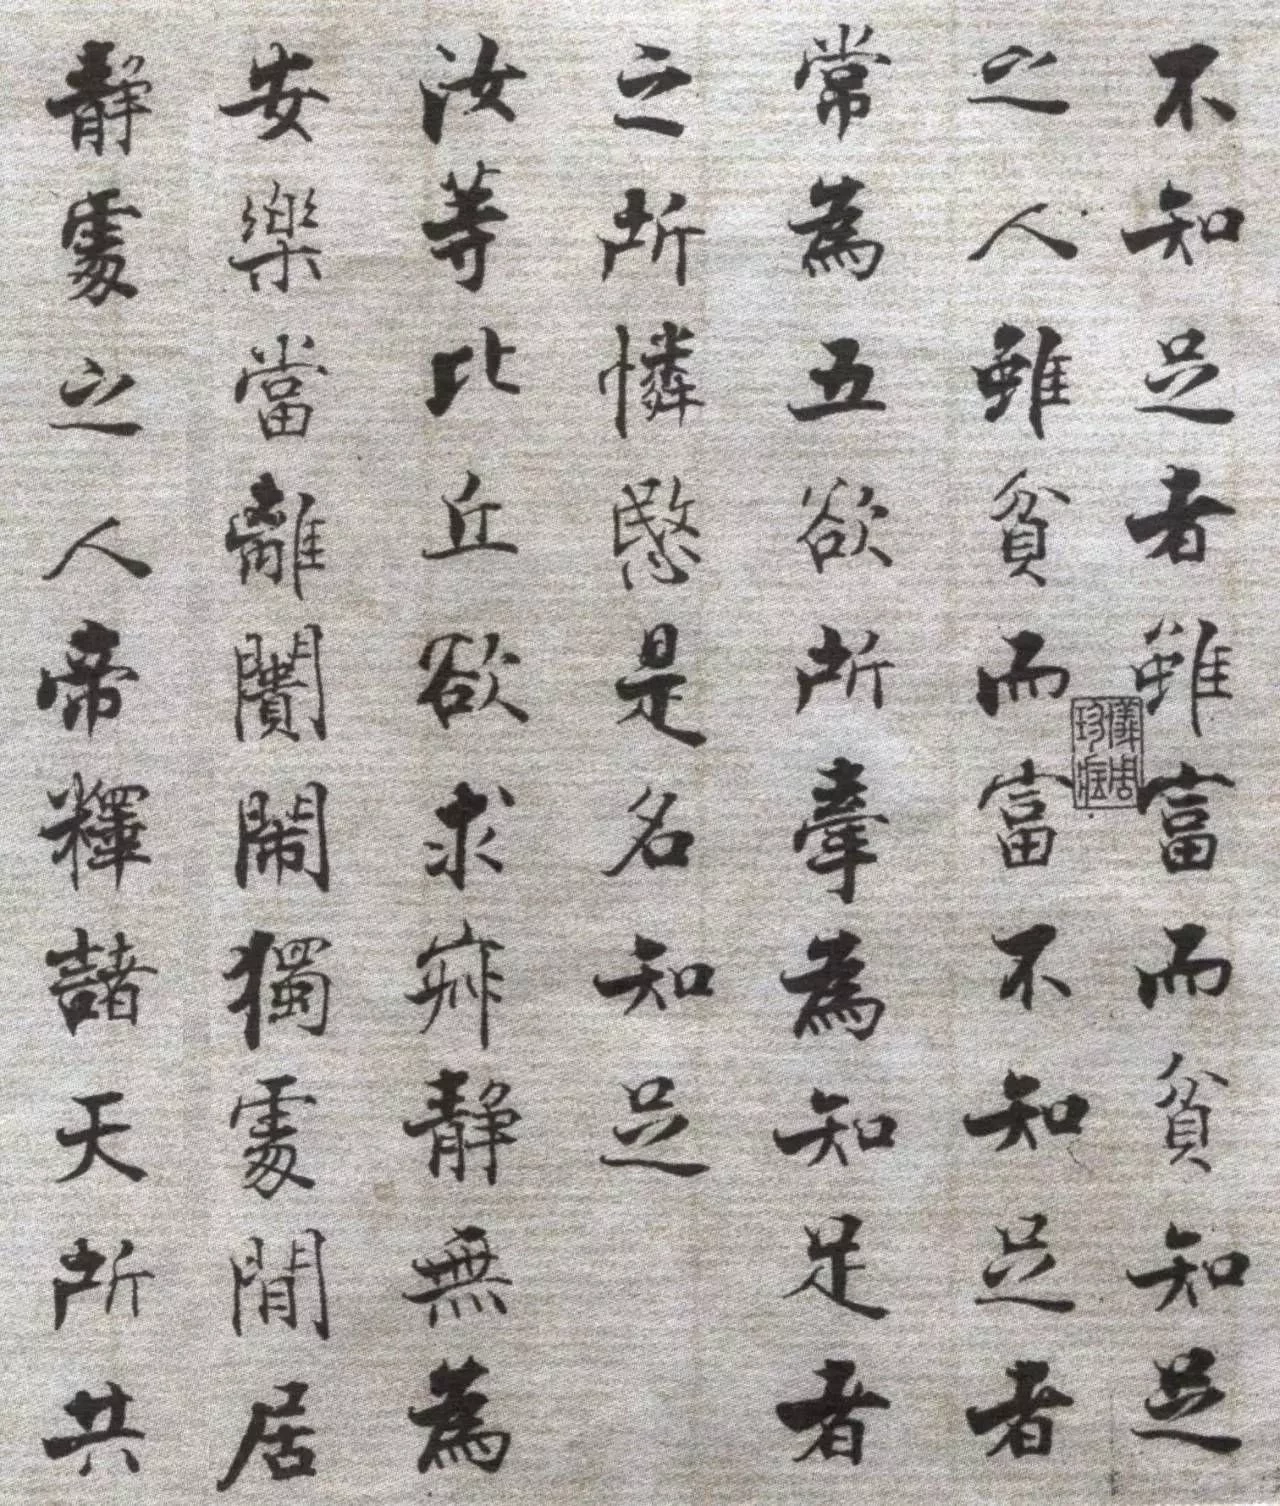 不知足者雖富而貧知足
之人雖貧而富不知足者
常為五欲所牽為知足者
之所憐愍是名知足
汝等比丘欲求寂静無為
安樂當離闠閙獨處閒居
静處之人帝釋諸天所共